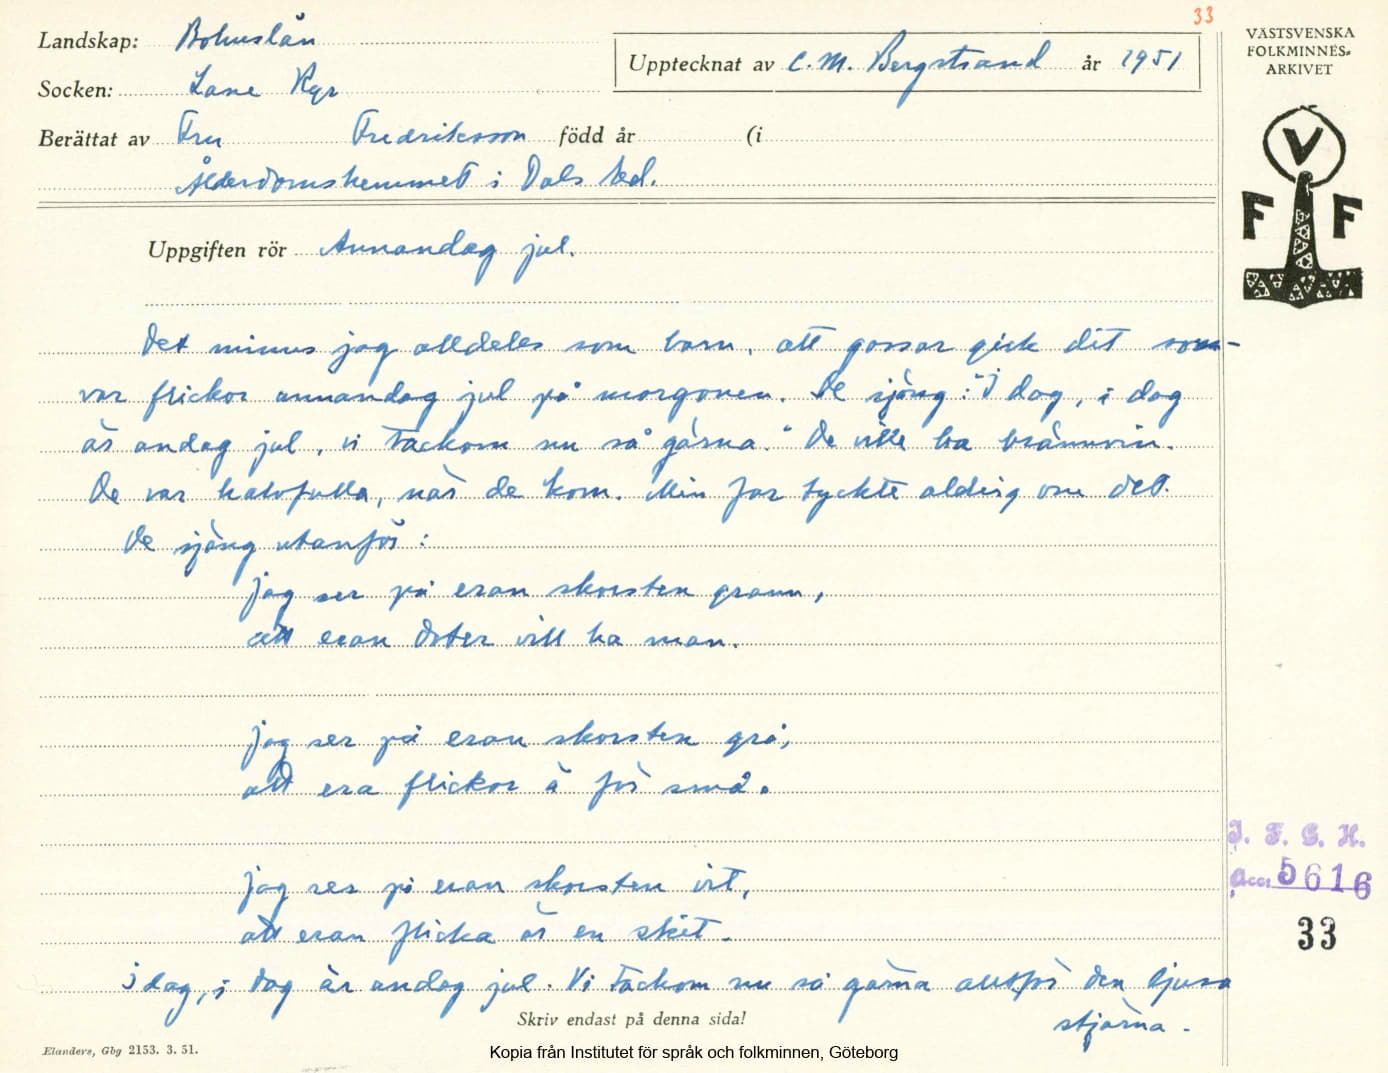 33
Landskap: Bohuslän
Upptecknat av C. M. Bergstrand år 1951
Socken: Lane Ryr
Berättat av Fru Fredriksson född år (i
Ålderdomshemmet i Dals Ed.
Uppgiften rör Annandag jul.
Det minns jag alldeles som barn, att gossar gick dit som
var flickor annandag jul på morgonen. De sjöng: "I dag, i dag
är andag jul, vi tackom nu så gärna." De ville ha brännvin.
De var halvfulla, när de kom. Min far tyckte aldrig om det.
De sjöng utanför:
Jag ser på eran skorsten grann,
att eran doter vill ha man.
Jag ser på eran skorsten grå,
att era flickor ä för små.
Jag ser på eran skorsten vit,
att eran flicka är en skit.
I dag, i dag är andag jul. Vi tackom nu så gärna alltför den ljusa
stjärna.
Skriv endast på denna sida!
Elanders, Gbg 2153. 3. 51.
Kopia från Institutet för språk och folkminnen, Göteborg
VÄSTSVENSKA
FOLKMINNES-
ARKIVET
V
F F
I. F. G. H.
Acc: 5616
33